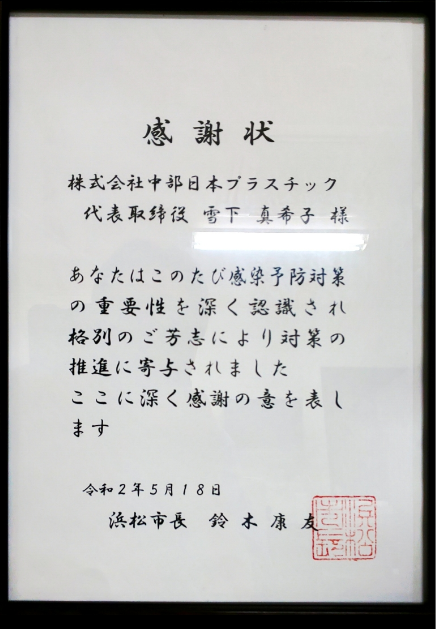 感謝状
株式会社中部日本プラスチック
代表取締役 雪下 真希子 様
あなたはこのたび感染予防対策
の重要性を深く認識され
格別のご芳志により対策の
推進に寄与されました
ここに深く感謝の意を表し
ます
令和2年5月18日
浜松市長 鈴木康友